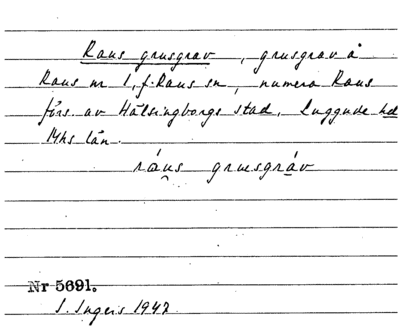 Raus grusgrav, grusgrav å
Raus nr 1, f. Raus sn, numera Raus
förs. av Hälsingborgs stad, Luggude hd
Mhs län.
ráus grusgráv
Nr 5691.
S. Ingers 1947